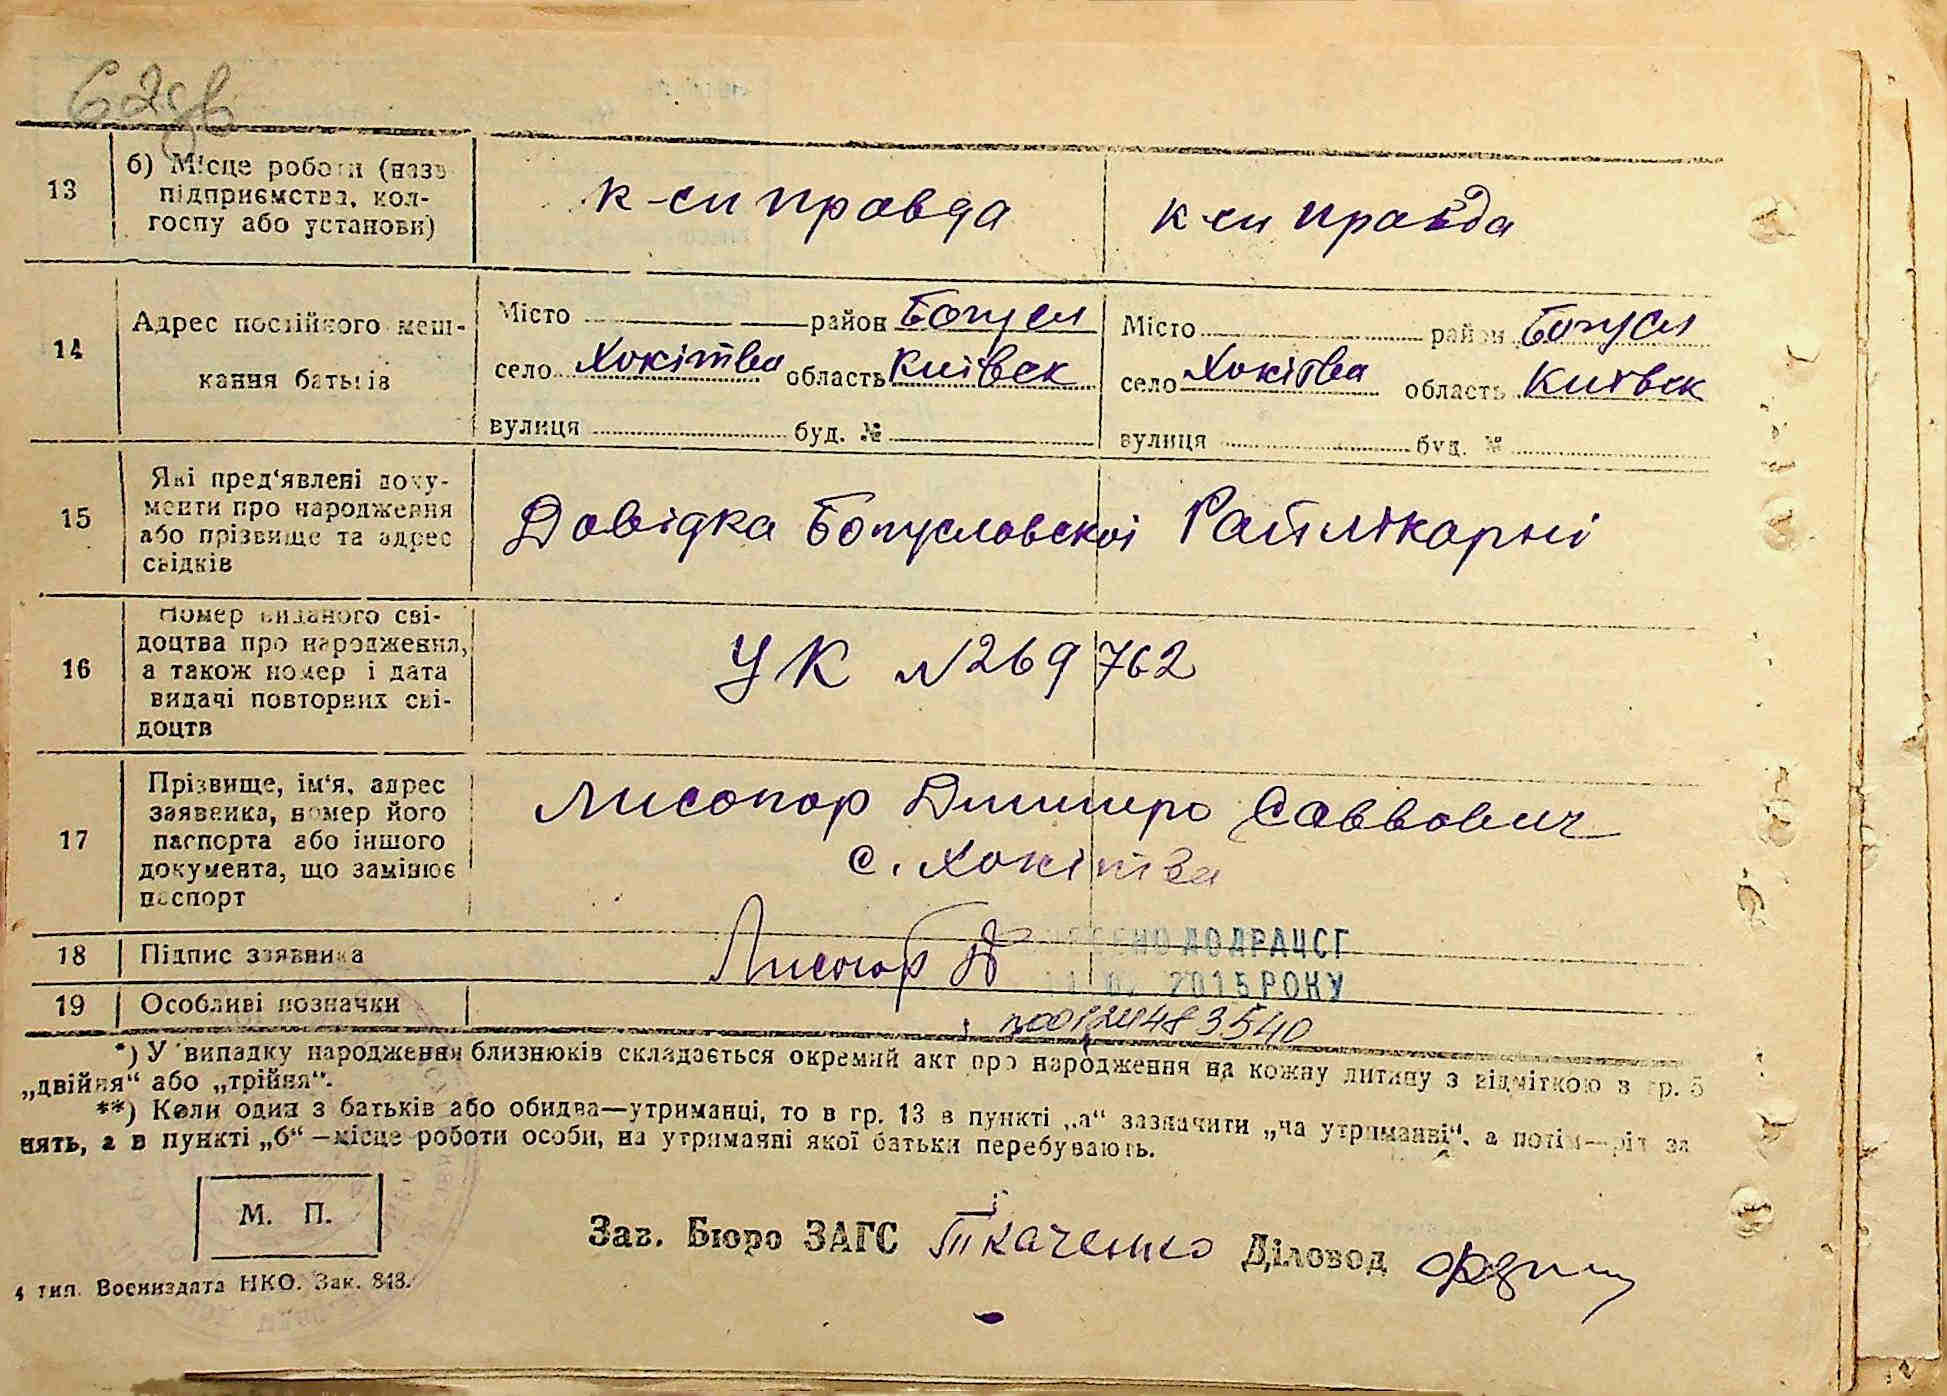 62зв
13
б) Місце роботи (назв
підприємства, кол-
госпу або установи)
к-сп правда
к-сп правда
14
Адрес постійного меш-
кання батьків
Місто район Богусл
село Хохітва область Київск
вулиця буд. №
Місто район Богусл
село Хохітва область Київск
вулиця буд. №
15
Які пред'явлені доку-
менти про народження
або прізвище та адрес
свідків
Довідка Богуславскої Райлікарні
16
Номер виданого сві-
доцтва про народження,
а також номер і дата
видачі повторних сві-
доцтв
УК №269762
17
Прізвище, ім'я, адрес
заявника, номер його
паспорта або іншого
документа, що замінює
паспорт
Лисогор Дмитро Саввович
с. Хохітва
18
Підпис заявника
Лисогор Д
ДО ДРАЦСГ
2015 РОКУ
19
Особливі позначки
*) У випадку народження близнюків складається окремий акт про народження на кожну дитину з відміткою в гр. 5
„двійня“ або „трійня“.
**) Коли один з батьків або обидва—утриманці, то в гр. 13 в пункті „а“ зазначити „на утриманні“, а потім—рід за
нять, а в пункті „б“—місце роботи особи, на утриманні якої батьки перебувають.
М. П.
Зав. Бюро ЗАГС Ткаченко Діловод
4 тип. Воениздата НКО. Зак. 848.